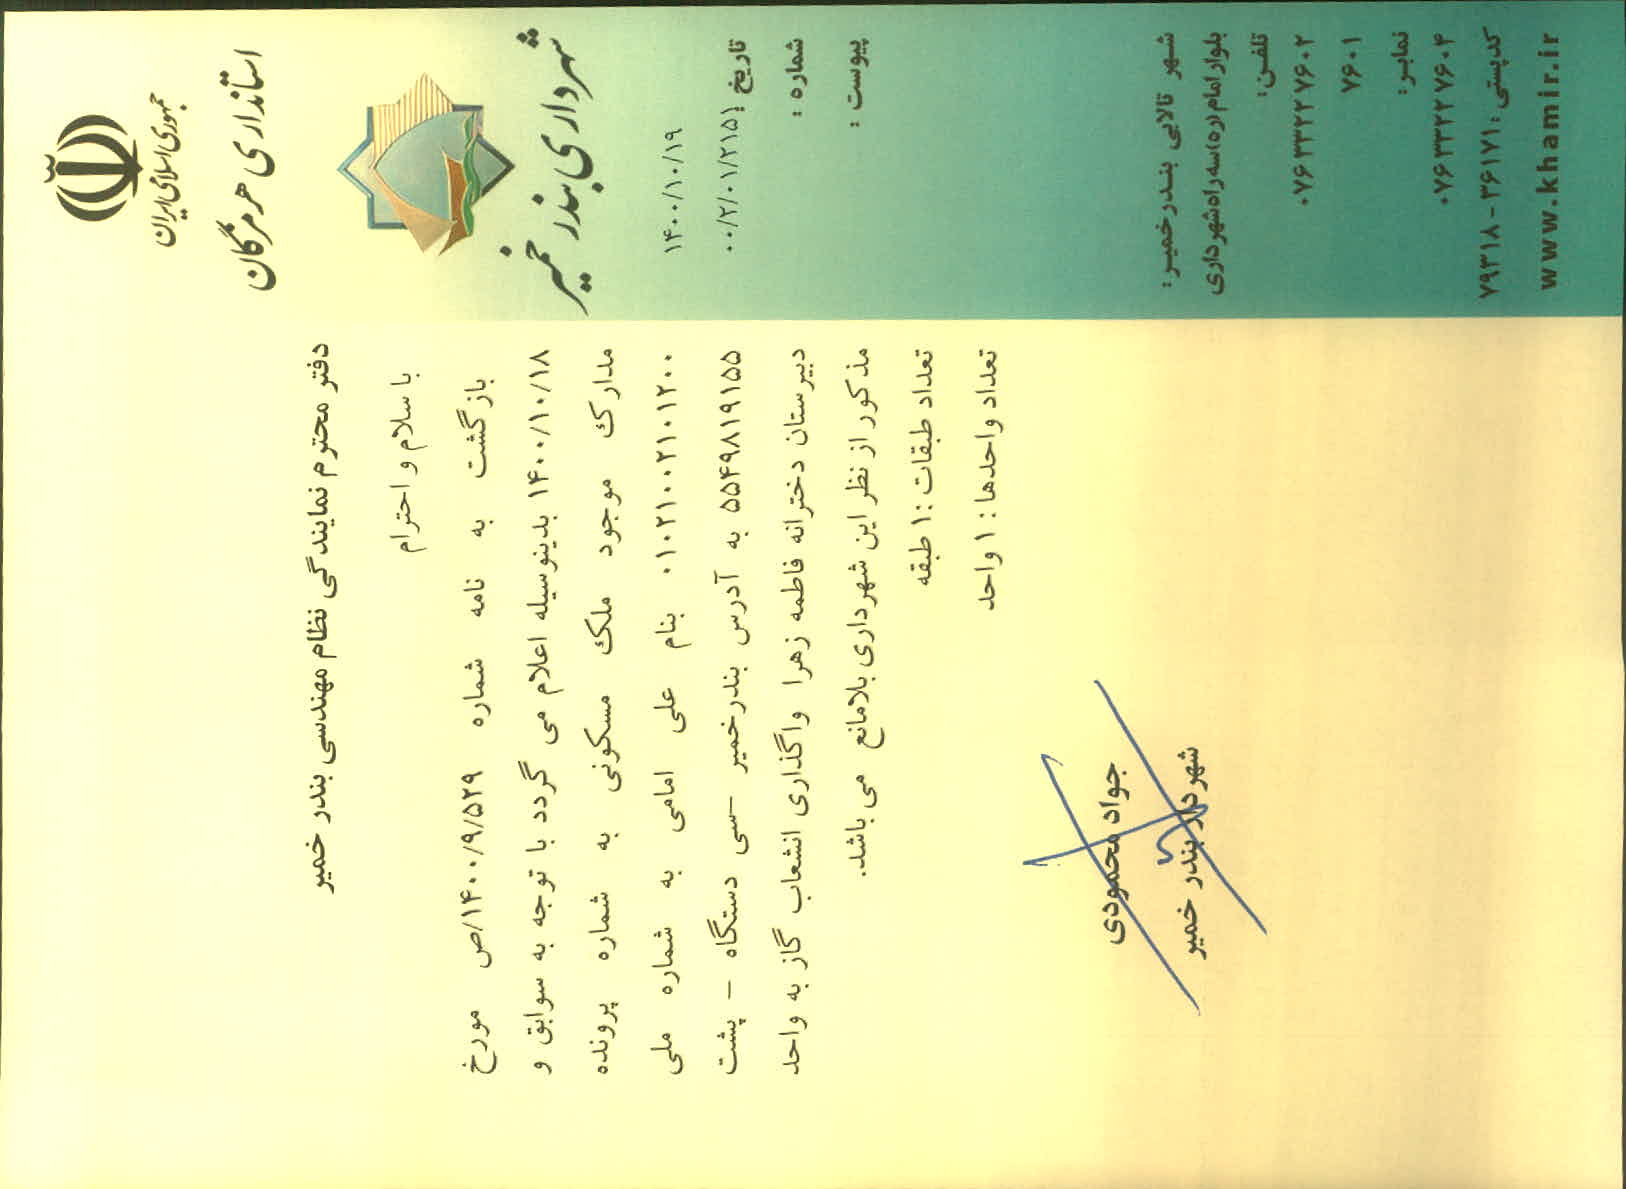 جمهوری اسلامی ایران
استانداری هرمزگان
شهرداری بندر خمیر
۱۴۰۰/۱۰/۱۹
تاریخ :
۰۰/۲/۰۱/۲۱۵۱
شماره :
پیوست :
دفتر محترم نمایندگی نظام مهندسی بندر خمیر
با سلام و احترام
بازگشت به نامه شماره ۱۴۰۰/۹/۵۲۹/ص مورخ
۱۴۰۰/۱۰/۱۸ بدینوسیله اعلام می گردد با توجه به سوابق و
مدارک موجود ملک مسکونی به شماره پرونده
۰۱۰۲۱۰۰۲۱۰۱۲۰۰ بنام علی امامی به شماره ملی
۵۵۴۹۸۱۹۱۵۵ به آدرس بندرخمیر –سی دستگاه – پشت
دبیرستان دخترانه فاطمه زهرا واگذاری انشعاب گاز به واحد
مذکور از نظر این شهرداری بلامانع می باشد.
تعداد طبقات :۱ طبقه
تعداد واحدها : ۱ واحد
جواد محمودی
شهردار بندر خمیر
شهر تالابی بندرخمیر :
بلوار امام (ره) سه راه شهرداری
تلفن:
۰۷۶۳۳۲۲۷۶۰۲
۷۶۰۱
نمابر :
۰۷۶۳۳۲۲۷۶۰۴
کدپستی : ۳۶۱۷۱ - ۷۹۳۱۸
www.khamir.ir